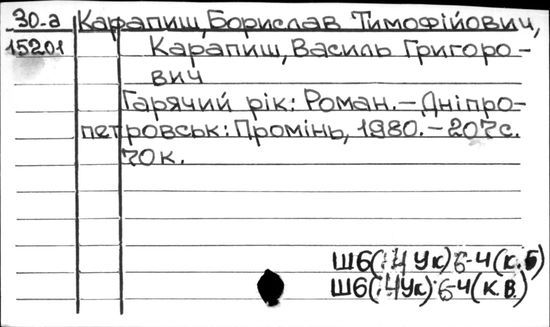 30-а Карапиш, Борислав Тимофійович,
15201 Карапиш, Василь Григоро-
вич
Гарячий рік: Роман. – Дніпро-
петровськ: Промінь, 1980. – 207с.
70к.
Ш6(:4Ук)6-4(К.Б)
Ш6(:4Ук)6-4(К.В)